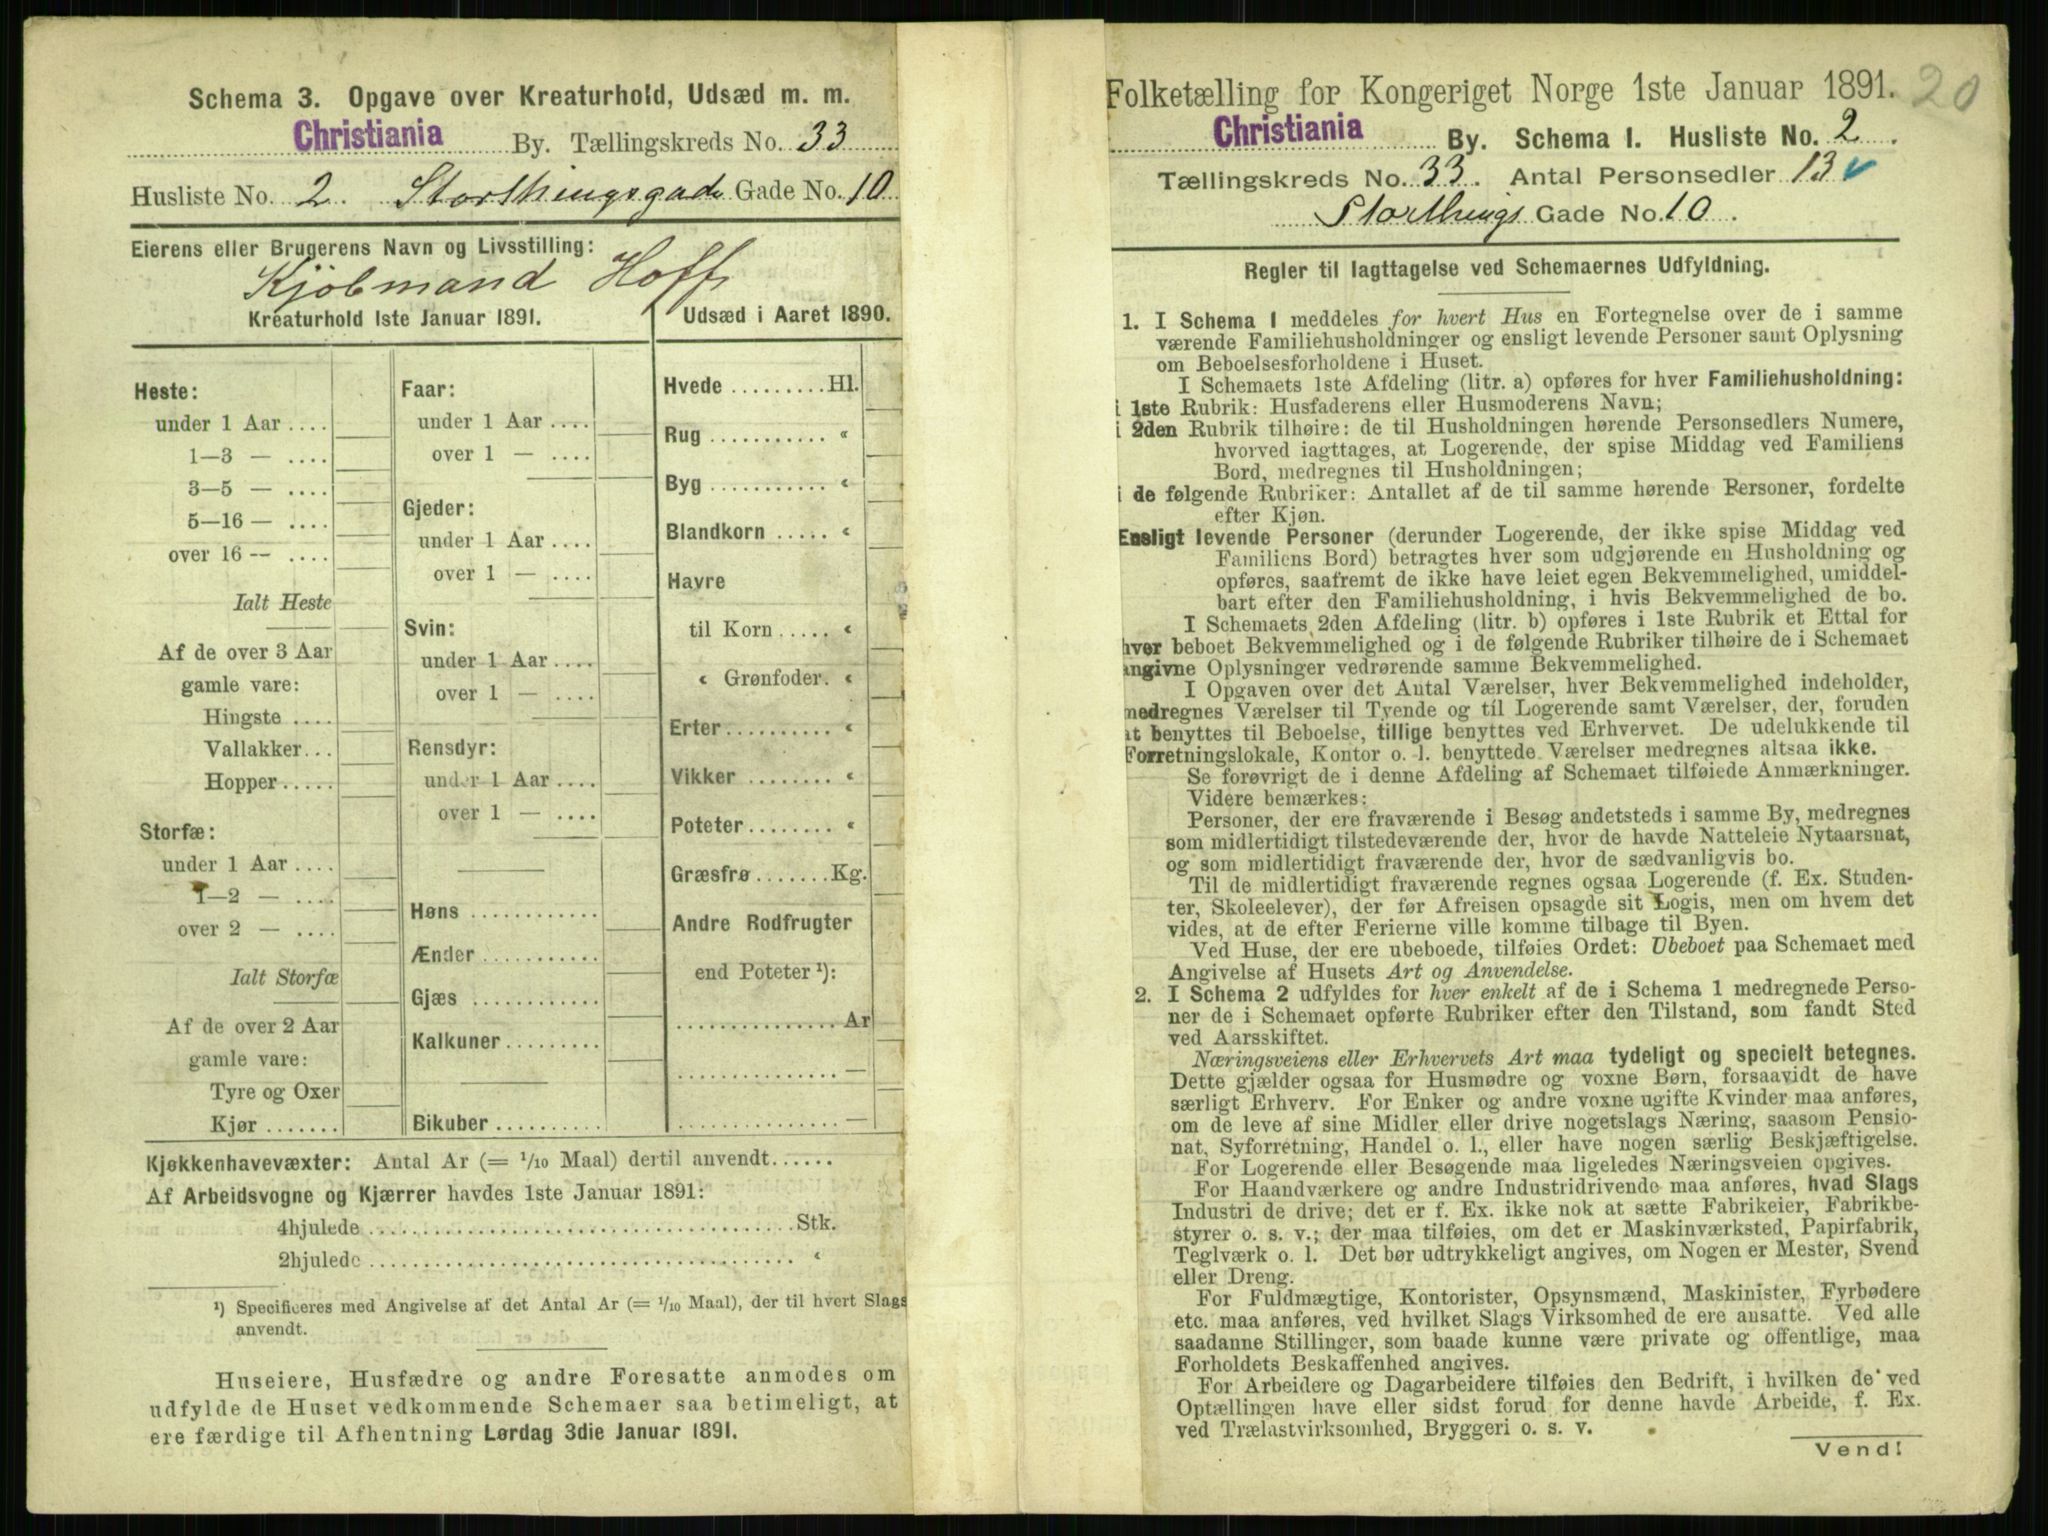 Schema 3. Opgave over Kreaturhold, Udsæd m. m.
Christiania By. Tællingskreds No. 33
Husliste No. 2. Storthingsgade Gade No. 10
Eierens eller Brugerens Navn og Livsstilling:
Kjøbmand Hoff
Kreaturhold 1ste Januar 1891.
Heste:
under 1 Aar ....
1—3 — ....
3—5 — ....
5—16 — ....
over 16 — ....
Ialt Heste
Af de over 3 Aar
gamle vare:
Hingste ....
Vallakker...
Hopper.....
Storfæ:
under 1 Aar ....
1—2 — ....
over 2 — ....
Ialt Storfæ
Af de over 2 Aar
gamle vare:
Tyre og Oxer
Kjør .......
Faar:
under 1 Aar ....
over 1 — ....
Gjeder:
under 1 Aar ....
over 1 — ....
Svin:
under 1 Aar ....
over 1 — ....
Rensdyr:
under 1 Aar ....
over 1 — ....
Høns ............
Ænder ...........
Gjæs ............
Kalkuner.........
Bikuber ..........
Udsæd i Aaret 1890.
Hvede .........Hl.
Rug ........... «
Byg ........... «
Blandkorn ..... «
Havre
til Korn ..... «
« Grønfoder. «
Erter .......... «
Vikker ........ «
Poteter ........ «
Græsfrø .......Kg.
Andre Rodfrugter
end Poteter ¹):
...............Ar
............... —
............... —
Kjøkkenhavevæxter: Antal Ar (= 1/10 Maal) dertil anvendt......
Af Arbeidsvogne og Kjærrer havdes 1ste Januar 1891:
4hjulede ........................................Stk.
2hjulede ........................................ «
¹) Specificeres med Angivelse af det Antal Ar (= 1/10 Maal), der til hvert Slags
anvendt.
Huseiere, Husfædre og andre Foresatte anmodes om
udfylde de Huset vedkommende Schemaer saa betimeligt, at
ere færdige til Afhentning Lørdag 3die Januar 1891.
Folketælling for Kongeriget Norge 1ste Januar 1891. 20
Christiania By. Schema 1. Husliste No. 2.
Tællingskreds No. 33. Antal Personsedler 13 ✓
Storthings Gade No. 10.
Regler til Iagttagelse ved Schemaernes Udfyldning.
1. I Schema 1 meddeles for hvert Hus en Fortegnelse over de i samme
værende Familiehusholdninger og ensligt levende Personer samt Oplysning
om Beboelsesforholdene i Huset.
I Schemaets 1ste Afdeling (litr. a) opføres for hver Familiehusholdning:
i 1ste Rubrik: Husfaderens eller Husmoderens Navn;
i 2den Rubrik tilhøire: de til Husholdningen hørende Personsedlers Numere,
hvorved iagttages, at Logerende, der spise Middag ved Familiens
Bord, medregnes til Husholdningen;
i de følgende Rubriker: Antallet af de til samme hørende Personer, fordelte
efter Kjøn.
Ensligt levende Personer (derunder Logerende, der ikke spise Middag ved
Familiens Bord) betragtes hver som udgjørende en Husholdning og
opføres, saafremt de ikke have leiet egen Bekvemmelighed, umiddel-
bart efter den Familiehusholdning, i hvis Bekvemmelighed de bo.
I Schemaets 2den Afdeling (litr. b) opføres i 1ste Rubrik et Ettal for
hver beboet Bekvemmelighed og i de følgende Rubriker tilhøire de i Schemaet
angivne Oplysninger vedrørende samme Bekvemmelighed.
I Opgaven over det Antal Værelser, hver Bekvemmelighed indeholder,
medregnes Værelser til Tyende og til Logerende samt Værelser, der, foruden
at benyttes til Beboelse, tillige benyttes ved Erhvervet. De udelukkende til
Forretningslokale, Kontor o. l. benyttede Værelser medregnes altsaa ikke.
Se forøvrigt de i denne Afdeling af Schemaet tilføiede Anmærkninger.
Videre bemærkes:
Personer, der ere fraværende i Besøg andetsteds i samme By, medregnes
som midlertidigt tilstedeværende der, hvor de havde Natteleie Nytaarsnat,
og som midlertidigt fraværende der, hvor de sædvanligvis bo.
Til de midlertidigt fraværende regnes ogsaa Logerende (f. Ex. Studen-
ter, Skoleelever), der før Afreisen opsagde sit Logis, men om hvem det
vides, at de efter Ferierne ville komme tilbage til Byen.
Ved Huse, der ere ubeboede, tilføies Ordet: Ubeboet paa Schemaet med
Angivelse af Husets Art og Anvendelse.
2. I Schema 2 udfyldes for hver enkelt af de i Schema 1 medregnede Perso-
ner de i Schemaet opførte Rubriker efter den Tilstand, som fandt Sted
ved Aarsskiftet.
Næringsveiens eller Erhvervets Art maa tydeligt og specielt betegnes.
Dette gjælder ogsaa for Husmødre og voxne Børn, forsaavidt de have
særligt Erhverv. For Enker og andre voxne ugifte Kvinder maa anføres,
om de leve af sine Midler eller drive nogetslags Næring, saasom Pensio-
nat, Syforretning, Handel o. l., eller have nogen særlig Beskjæftigelse.
For Logerende eller Besøgende maa ligeledes Næringsveien opgives.
For Haandværkere og andre Industridrivende maa anføres, hvad Slags
Industri de drive; det er f. Ex. ikke nok at sætte Fabrikeier, Fabrikbe-
styrer o. s. v.; der maa tilføies, om det er Maskinværksted, Papirfabrik,
Teglværk o. l. Det bør udtrykkeligt angives, om Nogen er Mester, Svend
eller Dreng.
For Fuldmægtige, Kontorister, Opsynsmænd, Maskinister, Fyrbødere
etc. maa anføres, ved hvilket Slags Virksomhed de ere ansatte. Ved alle
saadanne Stillinger, som baade kunne være private og offentlige, maa
Forholdets Beskaffenhed angives.
For Arbeidere og Dagarbeidere tilføies den Bedrift, i hvilken de ved
Optællingen have eller sidst forud for denne havde Arbeide, f. Ex.
ved Trælastvirksomhed, Bryggeri o. s. v.
Vend!